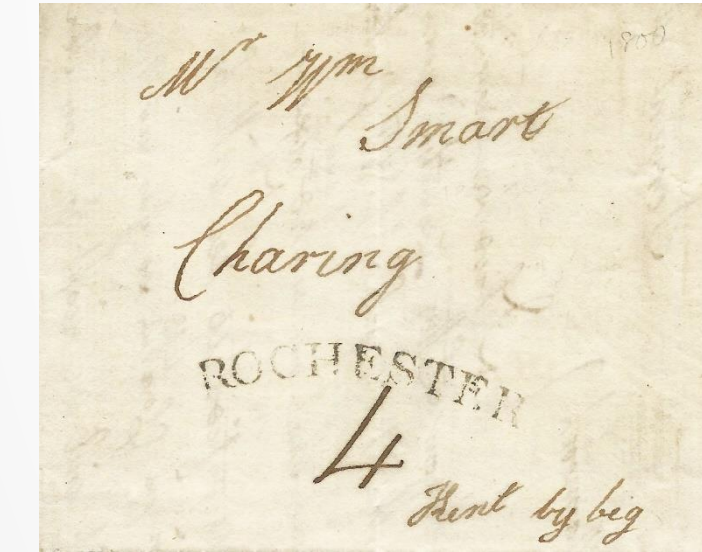 1800
Mr Wm
Smart
Charing
ROCHESTER
4
Kent by beg